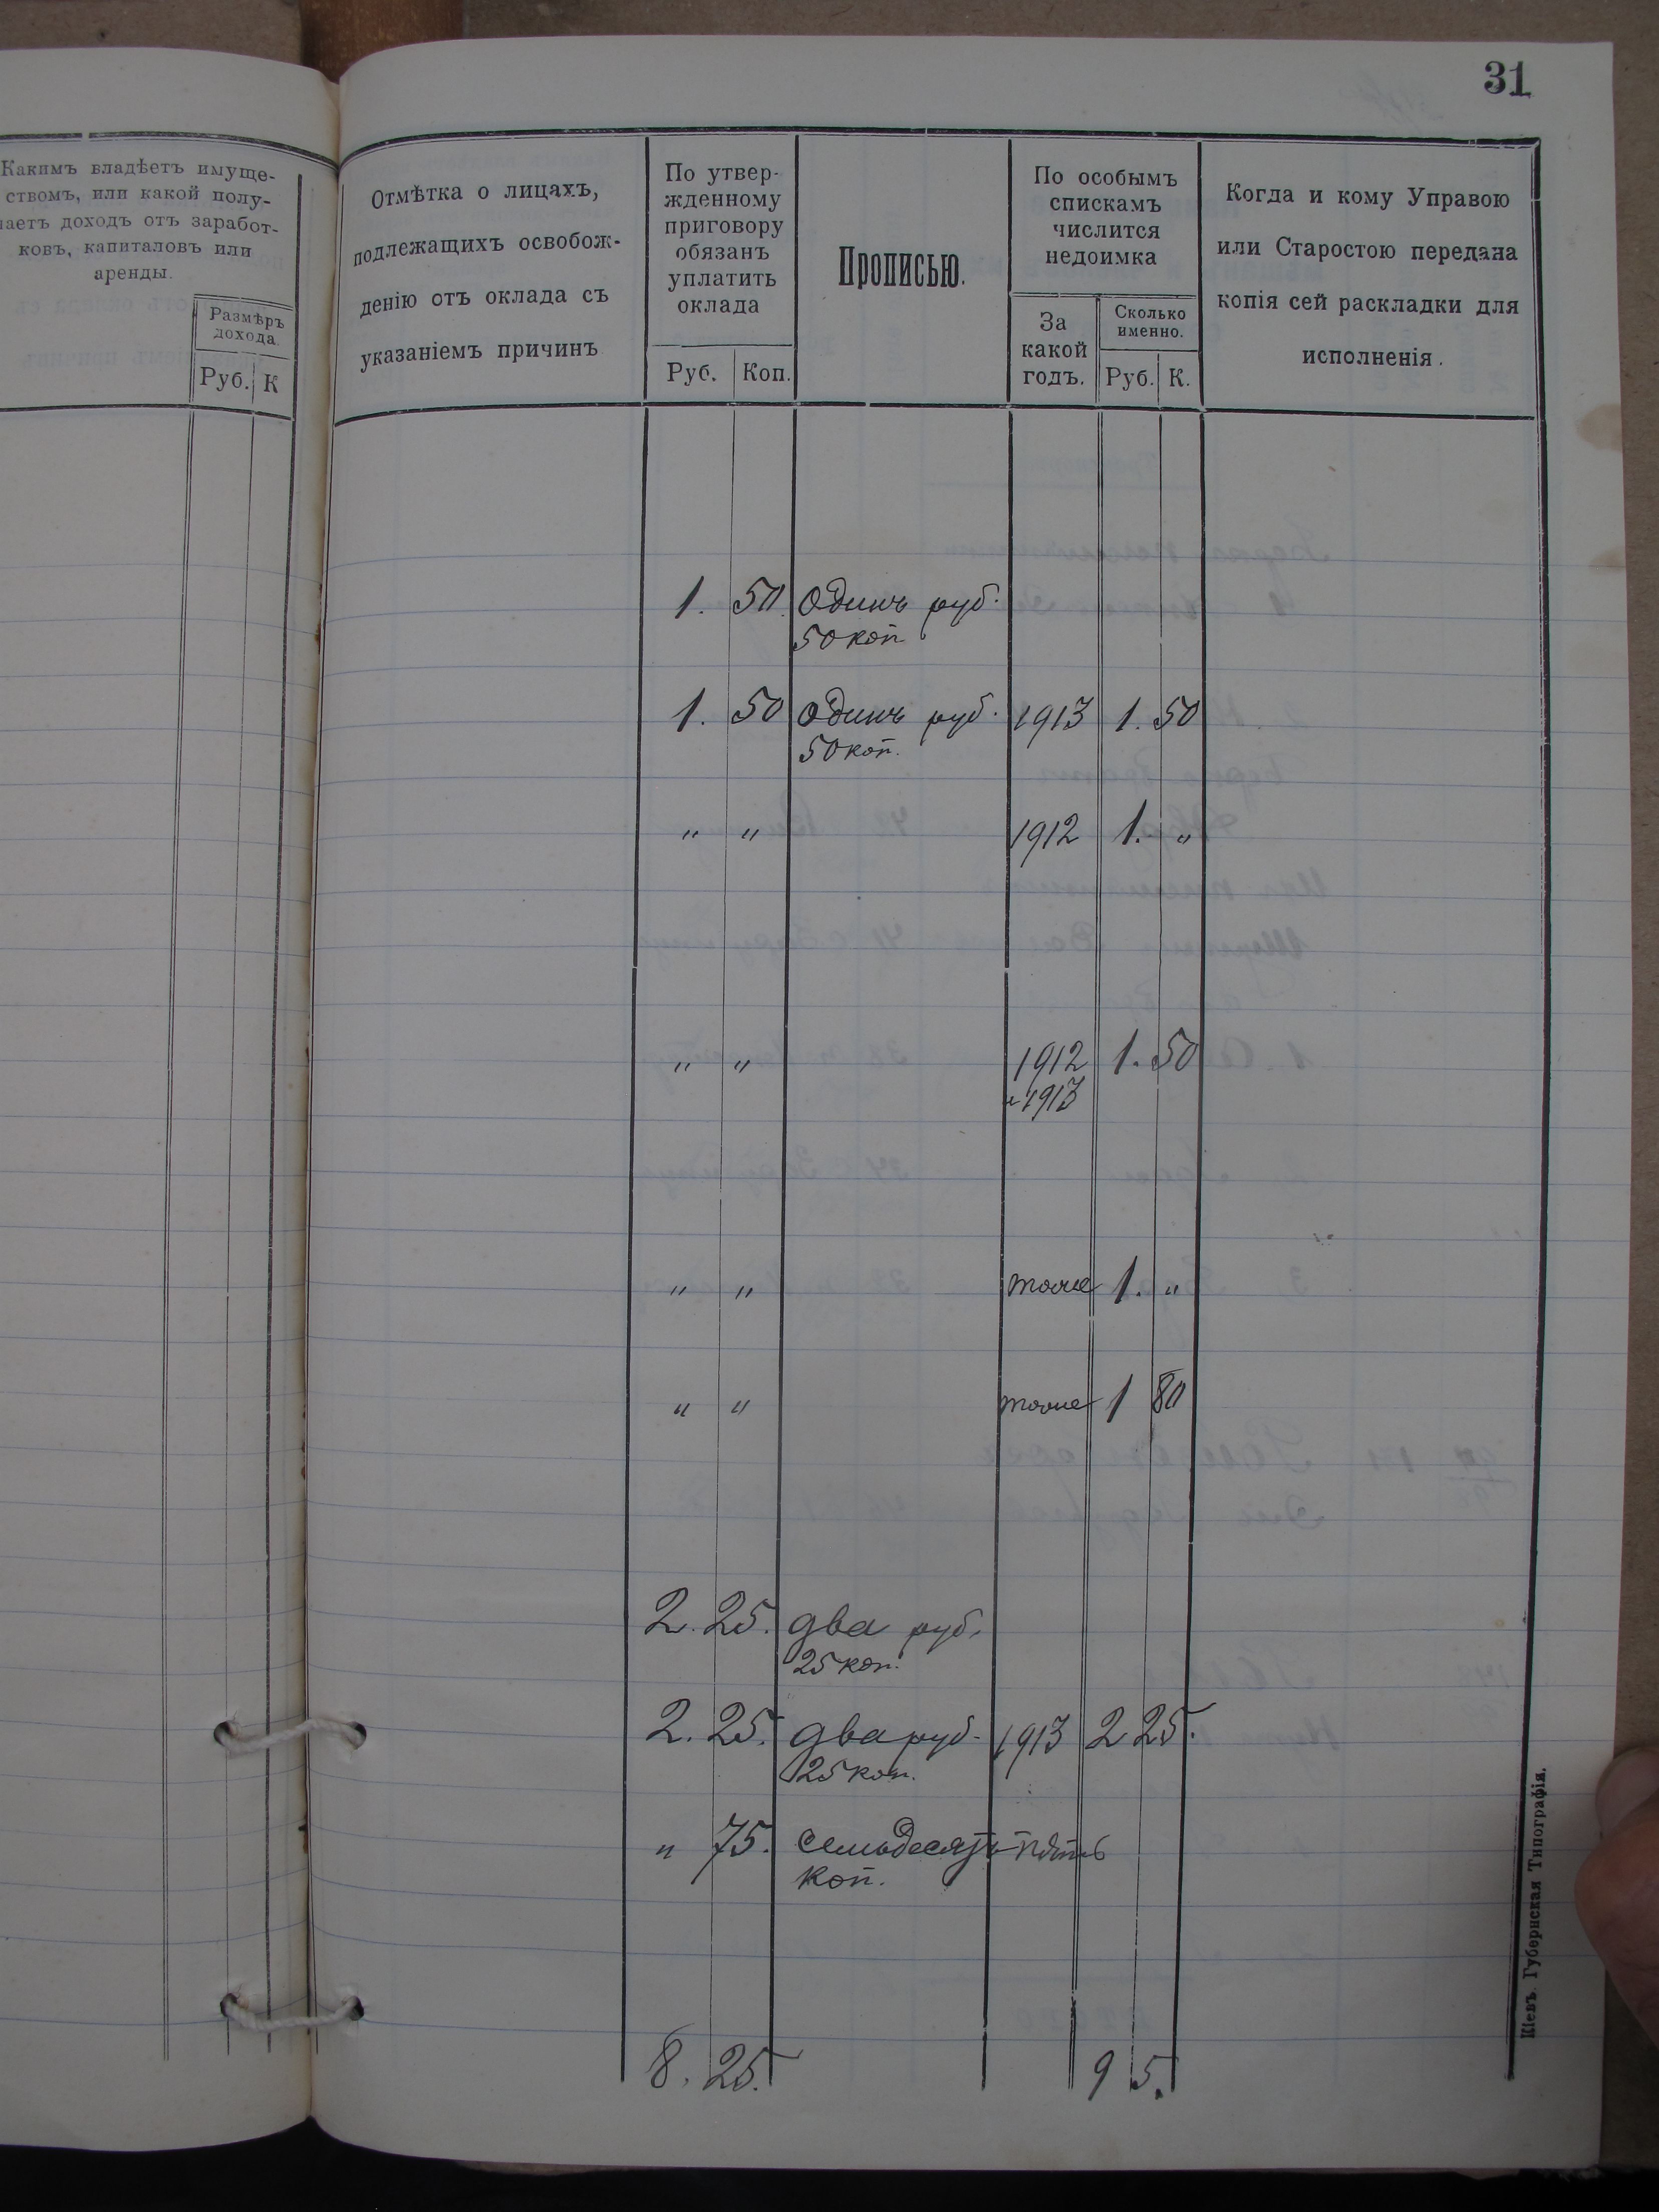 31
Какимъ владѣетъ имуще-
ствомъ, или какой полу-
чаетъ доходъ отъ заработ-
ковъ, капиталовъ или
аренды.
Размѣръ
дохода.
Руб. К
Отмѣтка о лицахъ,
подлежащихъ освобож-
денію отъ оклада съ
указаніемъ причинъ
По утвер-
жденному
приговору
обязанъ
уплатить
оклада
Руб. Коп.
Прописью.
По особымъ
спискамъ
числится
недоимка
За
какой
годъ.
Сколько
именно.
Руб. К.
Когда и кому Управою
или Старостою передана
копія сей раскладки для
исполненія.
1. 50. Одинъ руб.
50 коп
1. 50 Одинъ руб. 1913 1. 50
50 коп.
" " 1912 1. "
" " 1912 1. 50
и 1913
" " тоже 1. "
" " тоже 1 80
2. 25. два руб.
25 коп.
2. 25. два руб. 1913 2 25.
25 коп.
" 75. семьдесятъ пять
коп.
8. 25. 9 5.
Кіевъ. Губернская Типографія.